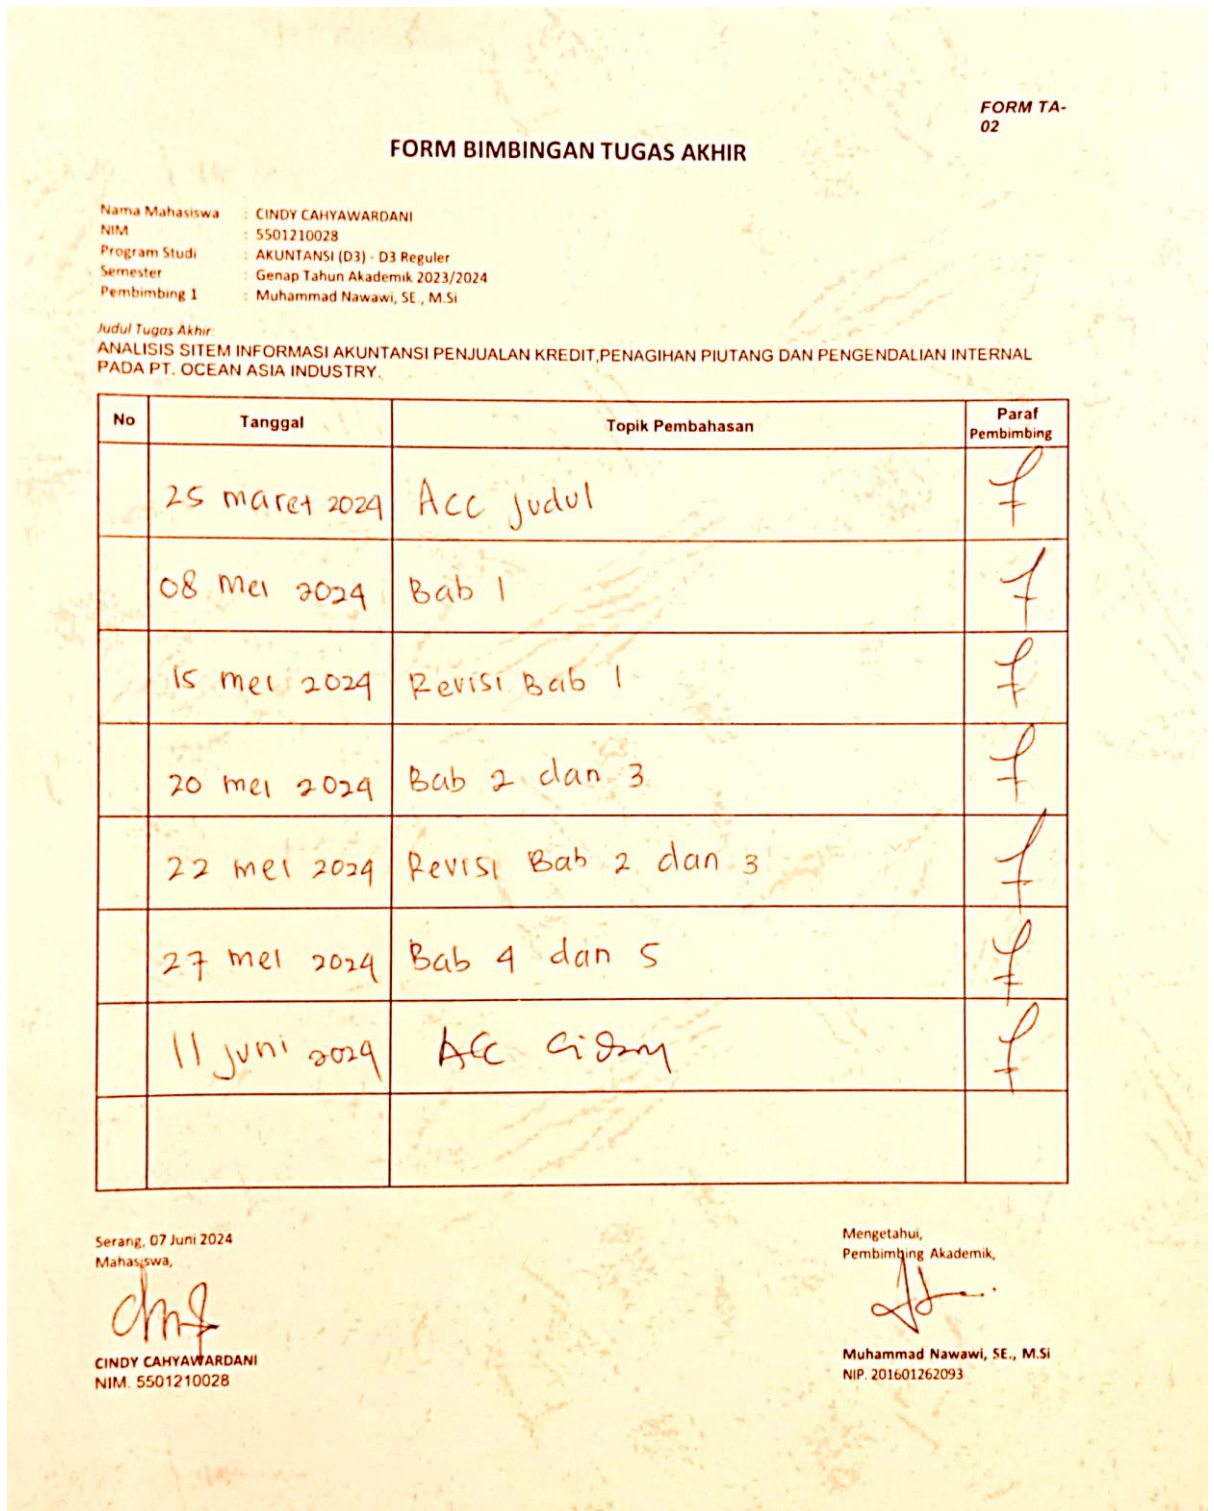 FORM TA-
02
FORM BIMBINGAN TUGAS AKHIR
Nama Mahasiswa : CINDY CAHYAWARDANI
NIM : 5501210028
Program Studi : AKUNTANSI (D3) - D3 Reguler
Semester : Genap Tahun Akademik 2023/2024
Pembimbing 1 : Muhammad Nawawi, SE., M.Si
Judul Tugas Akhir:
ANALISIS SITEM INFORMASI AKUNTANSI PENJUALAN KREDIT,PENAGIHAN PIUTANG DAN PENGENDALIAN INTERNAL
PADA PT. OCEAN ASIA INDUSTRY.
No Tanggal Topik Pembahasan Paraf Pembimbing
25 maret 2024 Acc Judul
08 mei 2024 Bab 1
15 mei 2024 Revisi Bab 1
20 mei 2024 Bab 2 dan 3
22 mei 2024 Revisi Bab 2 dan 3
27 mei 2024 Bab 4 dan 5
11 juni 2024 Acc
Serang, 07 Juni 2024
Mahasiswa,
CINDY CAHYAWARDANI
NIM. 5501210028
Mengetahui,
Pembimbing Akademik,
Muhammad Nawawi, SE., M.Si
NIP. 201601262093